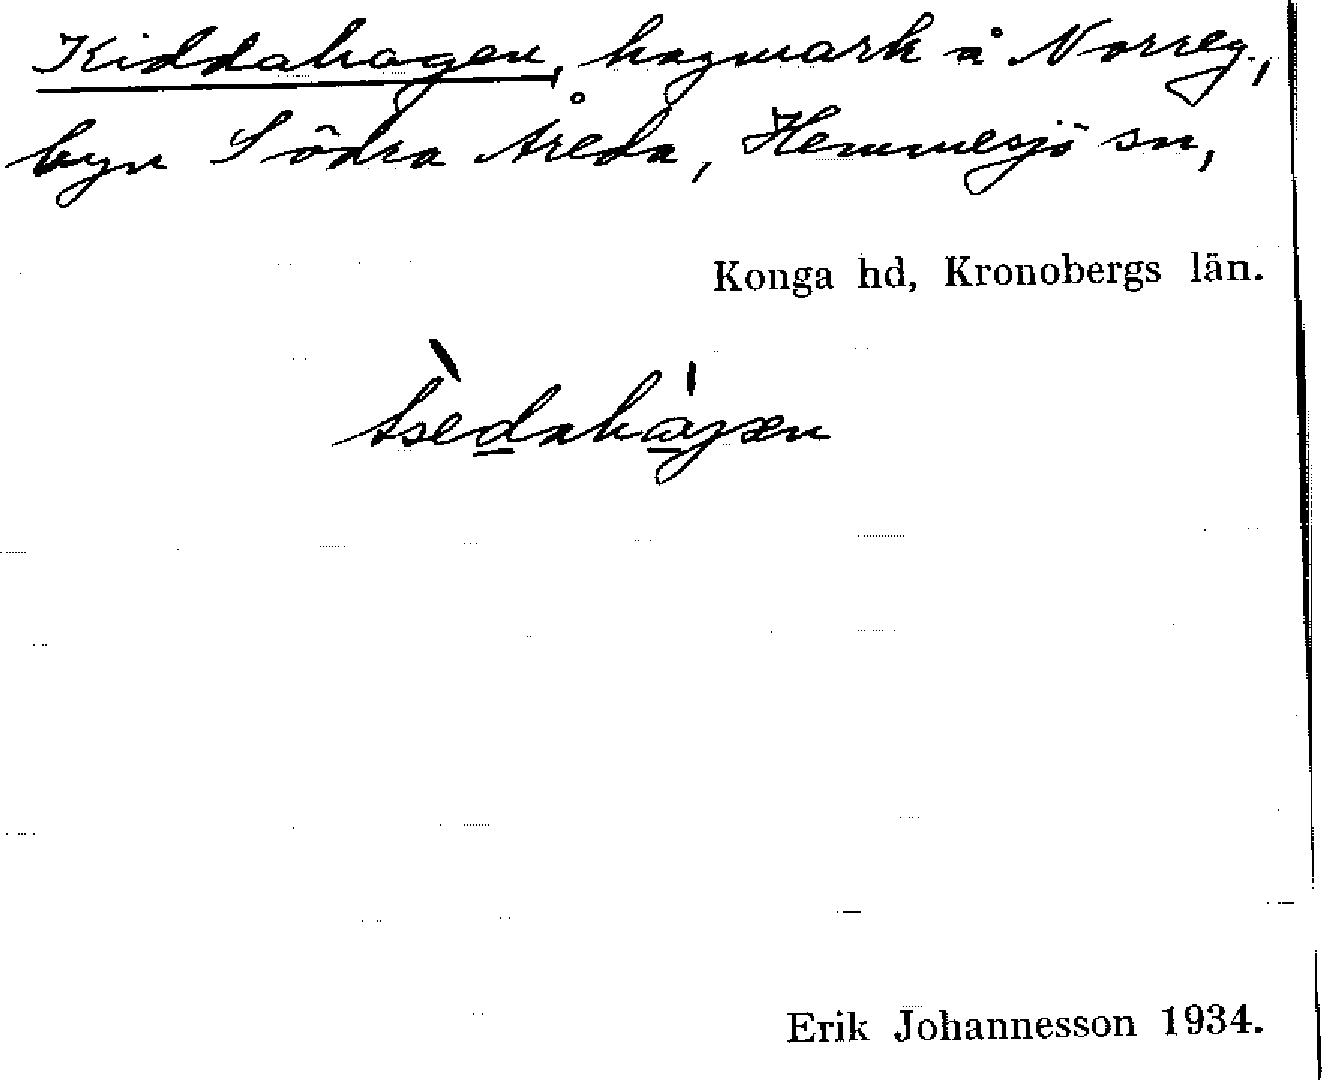 Kiddahagen, hagmark å Norreg.,
byn Södra Åreda, Hemmesjö sn,
Konga hd, Kronobergs län.
Erik Johannesson 1934.